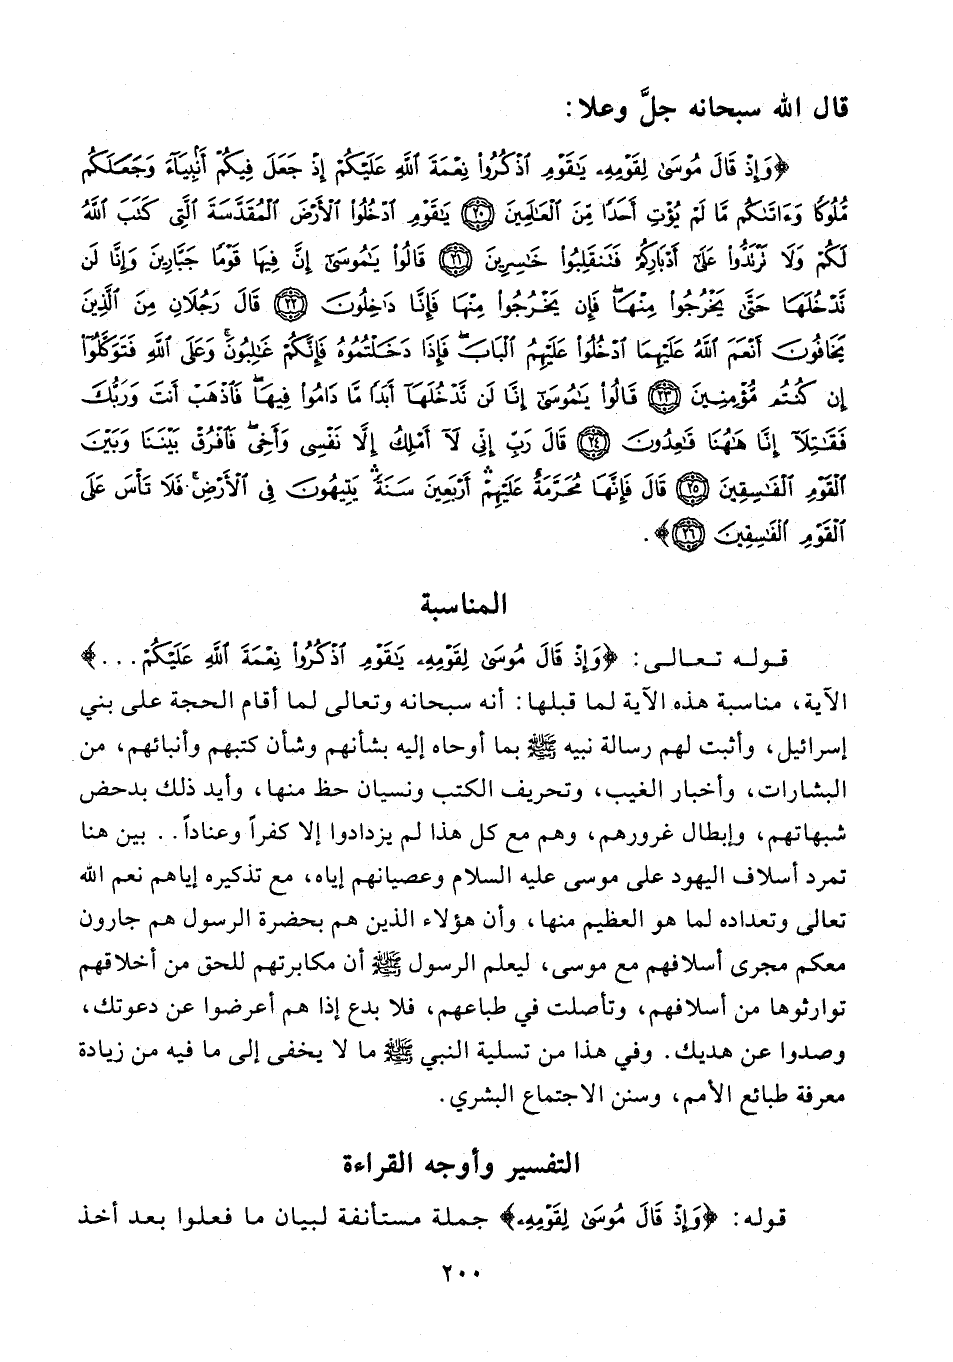 قال الله سبحانه جلَّ وعلا:
﴿وَإِذْ قَالَ مُوسَىٰ لِقَوْمِهِۦ يَٰقَوْمِ ٱذْكُرُوا۟ نِعْمَةَ ٱللَّهِ عَلَيْكُمْ إِذْ جَعَلَ فِيكُمْ أَنۢبِيَآءَ وَجَعَلَكُم
مُّلُوكًا وَءَاتَىٰكُم مَّا لَمْ يُؤْتِ أَحَدًا مِّنَ ٱلْعَٰلَمِينَ ٢٠ يَٰقَوْمِ ٱدْخُلُوا۟ ٱلْأَرْضَ ٱلْمُقَدَّسَةَ ٱلَّتِى كَتَبَ ٱللَّهُ
لَكُمْ وَلَا تَرْتَدُّوا۟ عَلَىٰٓ أَدْبَارِكُمْ فَتَنقَلِبُوا۟ خَٰسِرِينَ ٢١ قَالُوا۟ يَٰمُوسَىٰٓ إِنَّ فِيهَا قَوْمًا جَبَّارِينَ وَإِنَّا لَن
نَّدْخُلَهَا حَتَّىٰ يَخْرُجُوا۟ مِنْهَا ۖ فَإِن يَخْرُجُوا۟ مِنْهَا فَإِنَّا دَٰخِلُونَ ٢٢ قَالَ رَجُلَانِ مِنَ ٱلَّذِينَ
يَخَافُونَ أَنْعَمَ ٱللَّهُ عَلَيْهِمَا ٱدْخُلُوا۟ عَلَيْهِمُ ٱلْبَابَ ۖ فَإِذَا دَخَلْتُمُوهُ فَإِنَّكُمْ غَٰلِبُونَ ۚ وَعَلَى ٱللَّهِ فَتَوَكَّلُوٓا۟
إِن كُنتُم مُّؤْمِنِينَ ٢٣ قَالُوا۟ يَٰمُوسَىٰٓ إِنَّا لَن نَّدْخُلَهَآ أَبَدًا مَّا دَامُوا۟ فِيهَا ۖ فَٱذْهَبْ أَنتَ وَرَبُّكَ
فَقَٰتِلَآ إِنَّا هَٰهُنَا قَٰعِدُونَ ٢٤ قَالَ رَبِّ إِنِّى لَآ أَمْلِكُ إِلَّا نَفْسِى وَأَخِى ۖ فَٱفْرُقْ بَيْنَنَا وَبَيْنَ
ٱلْقَوْمِ ٱلْفَٰسِقِينَ ٢٥ قَالَ فَإِنَّهَا مُحَرَّمَةٌ عَلَيْهِمْ ۛ أَرْبَعِينَ سَنَةً ۛ يَتِيهُونَ فِى ٱلْأَرْضِ ۚ فَلَا تَأْسَ عَلَى
ٱلْقَوْمِ ٱلْفَٰسِقِينَ ٢٦﴾.
المناسبة
قوله تعالى: ﴿وَإِذْ قَالَ مُوسَىٰ لِقَوْمِهِۦ يَٰقَوْمِ ٱذْكُرُوا۟ نِعْمَةَ ٱللَّهِ عَلَيْكُمْ...﴾
الآية، مناسبة هذه الآية لما قبلها: أنه سبحانه وتعالى لما أقام الحجة على بني
إسرائيل، وأثبت لهم رسالة نبيه ﷺ بما أوحاه إليه بشأنهم وشأن كتبهم وأنبائهم، من
البشارات، وأخبار الغيب، وتحريف الكتب ونسيان حظ منها، وأيد ذلك بدحض
شبهاتهم، وإبطال غرورهم، وهم مع كل هذا لم يزدادوا إلا كفراً وعناداً.. بين هنا
تمرد أسلاف اليهود على موسى عليه السلام وعصيانهم إياه، مع تذكيره إياهم نعم الله
تعالى وتعداده لما هو العظيم منها، وأن هؤلاء الذين هم بحضرة الرسول هم جارون
معكم مجرى أسلافهم مع موسى، ليعلم الرسول ﷺ أن مكابرتهم للحق من أخلاقهم
توارثوها من أسلافهم، وتأصلت في طباعهم، فلا بدع إذا هم أعرضوا عن دعوتك،
وصدوا عن هديك. وفي هذا من تسلية النبي ﷺ ما لا يخفى إلى ما فيه من زيادة
معرفة طبائع الأمم، وسنن الاجتماع البشري.
التفسير وأوجه القراءة
قوله: ﴿وَإِذْ قَالَ مُوسَىٰ لِقَوْمِهِۦ﴾ جملة مستأنفة لبيان ما فعلوا بعد أخذ
٢٠٠